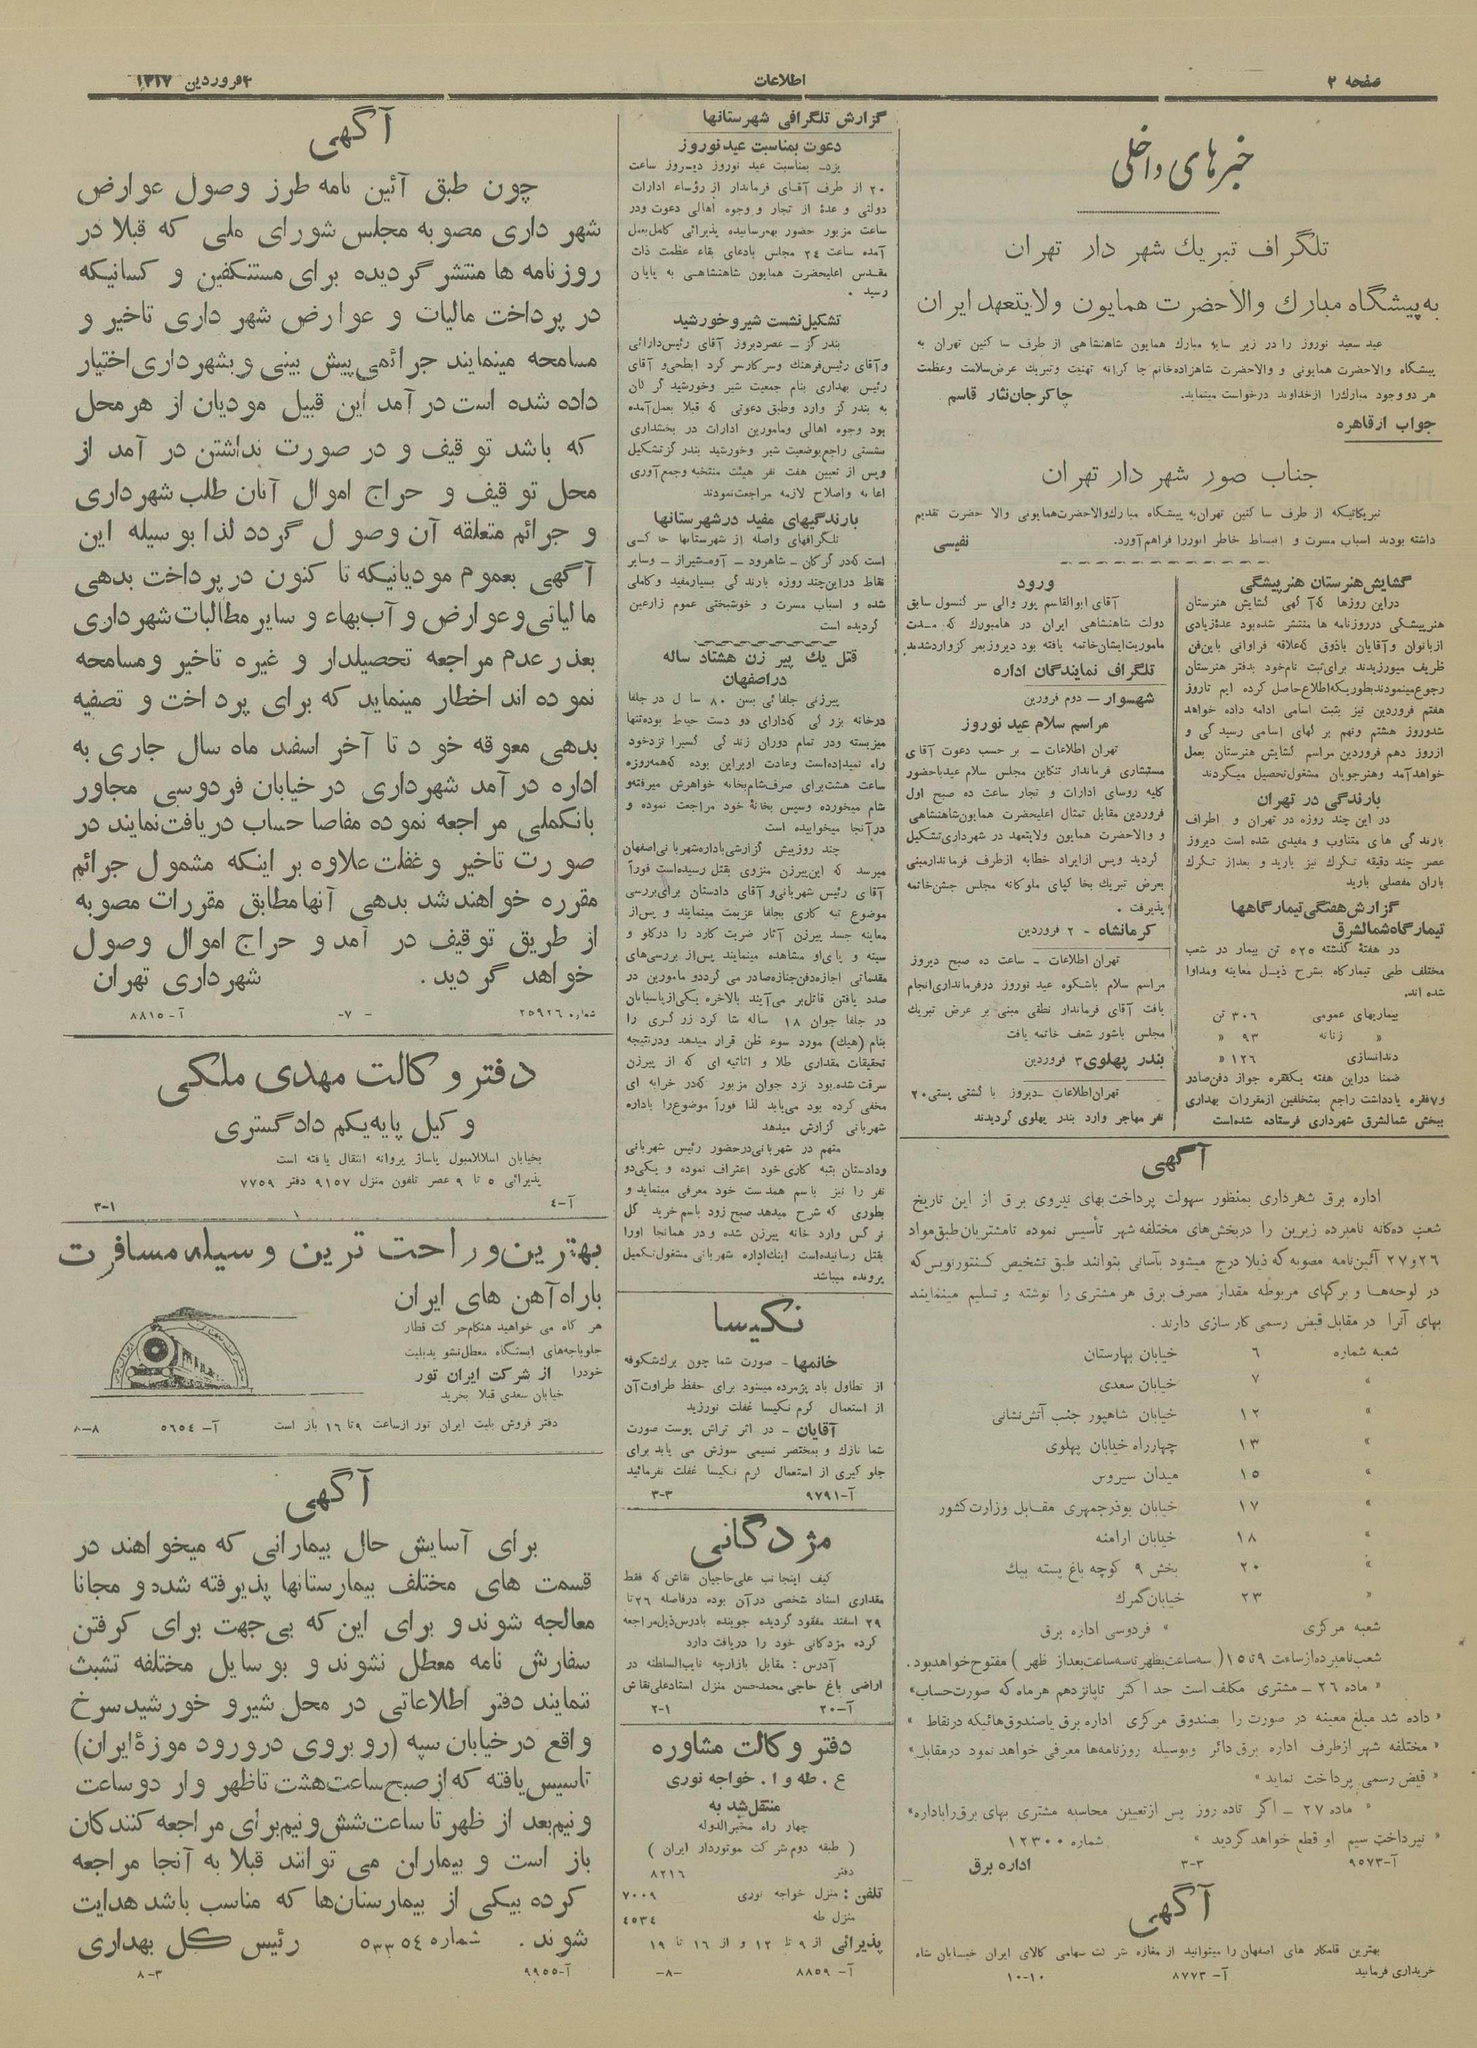 صفحه ۲
اطلاعات
۴ فروردین ۱۳۱۷
خبرهای داخلی
تلگراف تبریك شهر دار تهران
به پیشگاه مبارك والاحضرت همایون ولایتعهد ایران
عید سعید نوروز را در زیر سایه مبارك همایون شاهنشاهی از طرف ساکنین تهران به
پیشگاه والاحضرت همایونی و والاحضرت شاهزاده خانم چاکرانه تهنیت وتبریك عرض سلامت وعظمت
هر دو وجود مبارك را از خداوند درخواست مینماید. چاکر جان نثار قاسم
جواب از قاهره
جناب صور شهر دار تهران
تبریکاتیکه از طرف ساکنین تهران به پیشگاه مبارك والاحضرت همایونی والا حضرت تقدیم
داشته بودند اسباب مسرت و انبساط خاطر انور را فراهم آورد. نفیسی
گشایش هنرستان هنرپیشگی
در این روزها که آگهی گشایش هنرستان
هنرپیشگی در روزنامه ها منتشر شده بود عده زیادی
از بانوان و آقایان باذوق که علاقه فراوانی باین فن
ظریف میورزیدند برای ثبت نام خود بدفتر هنرستان
رجوع مینمودند بطوریکه اطلاع حاصل کرده ایم تا روز
هفتم فروردین نیز بثبت اسامی ادامه داده خواهد
شد و روز هشتم ونهم برگهای اسامی رسیدگی و
از روز دهم فروردین مراسم گشایش هنرستان بعمل
خواهد آمد وهنرجویان مشغول تحصیل میگردند
بارندگی در تهران
در این چند روزه در تهران و اطراف
بارندگی های متناوب و مفیدی شده است دیروز
عصر چند دقیقه تگرك نیز بارید و بعد از تگرك
باران مفصلی بارید
گزارش هفتگی تیمارگاهها
تیمارگاه شمالشرق
در هفته گذشته ۵۲۵ تن بیمار در شعب
مختلف طبی تیمارگاه بشرح ذیل معاینه ومداوا
شده اند.
بیماریهای عمومی ۳۰۶ تن
« زنانه ۹۳ «
دندانسازی ۱۲۶ «
ضمنا در این هفته یکفقره جواز دفن صادر
و ۷ فقره یادداشت راجع بمتخلفین از مقررات بهداری
ببخش شمالشرق شهرداری فرستاده شده است
ورود
آقای ابوالقاسم پور والی سر کنسول سابق
دولت شاهنشاهی ایران در هامبورك که مدت
ماموریت ایشان خاتمه یافته بود دیروز بمرکز وارد شدند
تلگراف نمایندگان اداره
شهسوار – دوم فرورین
مراسم سلام عید نوروز
تهران اطلاعات – بر حسب دعوت آقای
مستشاری فرماندار تنکابن مجلس سلام عید با حضور
کلیه روسای ادارات و تجار ساعت ده صبح اول
فروردین مقابل تمثال اعلیحضرت همایون شاهنشاهی
و والاحضرت همایون ولایتعهد در شهرداری تشکیل
گردید وپس از ایراد خطابه از طرف فرماندار مبنی
بعرض تبریك بخاکپای ملوکانه مجلس جشن خاتمه
پذیرفت .
کرمانشاه – ۲ فروردین
تهران اطلاعات – ساعت ده صبح دیروز
مراسم سلام باشکوه عید نوروز در فرمانداری انجام
یافت آقای فرماندار نطقی مبنی بر عرض تبریك
مجلس باشور شعف خاتمه یافت
بندر پهلوی ۳ فروردین
تهران اطلاعات – دیروز با کشتی پستی ۲۰
نفر مهاجر وارد بندر پهلوی گردیدند
آگهی
اداره برق شهرداری بمنظور سهولت پرداخت بهای نیروی برق از این تاریخ
شعب ده گانه نامبرده زیرین را در بخش های مختلفه شهر تأسیس نموده تا مشتریان طبق مواد
۲۶ و ۲۷ آئین نامه مصوبه که ذیلا درج میشود بآسانی بتوانند طبق تشخیص کنتور نویس که
در لوحه ها و برگهای مربوطه مقدار مصرف برق هر مشتری را نوشته و تسلیم مینمایند
بهای آنرا در مقابل قبض رسمی کار سازی دارند .
شعبه شماره ۶ خیابان بهارستان
« ۷ خیابان سعدی
« ۱۲ خیابان شاهپور جنب آتش نشانی
« ۱۳ چهارراه خیابان پهلوی
« ۱۵ میدان سیروس
« ۱۷ خیابان بوذرجمهری مقابل وزارت کشور
« ۱۸ خیابان ارامنه
« ۲۰ بخش ۹ کوچه باغ پسته بیك
« ۲۳ خیابان گمرك
شعبه مرکزی « فردوسی اداره برق
شعب نامبرده از ساعت ۹ تا ۱۵ (سه ساعت بظهر تا سه ساعت بعد از ظهر) مفتوح خواهد بود.
« ماده ۲۶ – مشتری مکلف است حداکثر تا پانزدهم هر ماه که صورت حساب»
« داده شد مبلغ معینه در صورت را بصندوق مرکزی اداره برق یا صندوق هائیکه در نقاط »
« مختلفه شهر از طرف اداره برق دائر وبوسیله روزنامه ها معرفی خواهد نمود در مقابل»
« قبض رسمی پرداخت نماید »
« ماده ۲۷ – اگر تا ده روز پس از تعیین محاسبه مشتری بهای برق را باداره»
« نپرداخت سیم او قطع خواهد گردید » شماره ۱۲۳۰۰
آ–۹۵۷۳ ۳–۳ اداره برق
آگهی
بهترین قلمکار های اصفهان را میتوانید از مغازه شرکت سهامی کالای ایران خیابان شاه
خریداری فرمائید آ– ۸۷۷۳ ۱۰–۱۰
گزارش تلگرافی شهرستانها
دعوت بمناسبت عید نوروز
یزد– بمناسبت عید نوروز دیروز ساعت
۲۰ از طرف آقای فرماندار از رؤساء ادارات
دولتی و عدهٔ از تجار و وجوه اهالی دعوت ودر
ساعت مزبور حضور بهمرسانیده پذیرائی کامل بعمل
آمده ساعت ۲۴ مجلس بادعای بقاء عظمت ذات
مقدس اعلیحضرت همایون شاهنشاهی به پایان
رسید .
تشکیل نشست شیر و خورشید
بندر گز – عصر دیروز آقای رئیس دارائی
و آقای رئیس فرهنك وسرکار سرگرد ابطحی و آقای
رئیس بهداری بنام جمعیت شیر وخورشید گرگان
به بندر گز وارد وطبق دعوتی که قبلا بعمل آمده
بود وجوه اهالی ومامورین ادارات در بخشداری
نشستی راجع بوضعیت شیر وخورشید بندر گز تشکیل
وپس از تعیین هفت نفر هیئت منتخبه وجمع آوری
اعانه واصلاح لازمه مراجعت نمودند
بارندگیهای مفید در شهرستانها
تلگرافهای واصله از شهرستانها حاکی
است که در گرگان – شاهرود – آوه – شیراز – وسایر
نقاط در این چند روزه بارندگی بسیار مفید و کاملی
شده و اسباب مسرت و خوشبختی عموم زارعین
گردیده است
قتل یك پیر زن هشتاد ساله
در اصفهان
پیرزنی جلفائی بسن ۸۰ سال در جلفا
در خانه بزرگی که دارای دو دست حیاط بوده تنها
میزیسته ودر تمام دوران زندگی کسیرا نزد خود
راه نمیداده است وعادت او بر این بوده که همه روزه
ساعت هشت برای صرف شام بخانه خواهرش میرفته و
شام میخورده وسپس بخانهٔ خود مراجعت نموده و
در آنجا میخوابیده است
چند روز پیش گزارشی باداره شهربانی اصفهان
میرسد که این پیرزن منزوی بقتل رسیده است فوراً
آقای رئیس شهربانی و آقای دادستان برای بررسی
موضوع تبه کاری بجلفا عزیمت مینمایند و پس از
معاینه جسد پیرزن آثار ضربت کارد را در گلو و
سینه و پای او مشاهده مینمایند پس از بررسی های
مقدماتی اجازه دفن جنازه صادر می گردد و مامورین در
صدد یافتن قاتل بر می آیند بالاخره یکی از پاسبانان
در جلفا جوان ۱۸ ساله شاگرد زرگری را
بنام (هیك) مورد سوء ظن قرار میدهد ودر نتیجه
تحقیقات مقداری طلا و اثاثیه ای که از پیرزن
سرقت شده بود نزد جوان مزبور که در خرابه ای
مخفی کرده بود می یابد لذا فوراً موضوع را باداره
شهربانی گزارش میدهد
متهم در شهربانی در حضور رئیس شهربانی
ودادستان بتبه کاری خود اعتراف نموده و یکی دو
نفر را نیز باسم همدست خود معرفی مینماید و
بطوری که شرح میدهد صبح زود باسم خرید گل
نرگس وارد خانه پیرزن شده و در همانجا اورا
بقتل رسانیده است اینك اداره شهربانی مشغول تکمیل
پرونده میباشد
نکیسا
خانمها – صورت شما چون برك شکوفه
از تطاول باد پژمرده میشود برای حفظ طراوت آن
از استعمال کرم نکیسا غفلت نورزید
آقایان – در اثر تراش پوست صورت
شما نازك و بمختصر نسیمی سوزش می یابد برای
جلوگیری از استعمال کرم نکیسا غفلت نفرمائید
آ–۹۷۹۱ ۳–۳
مژدگانی
کیف اینجانب علی حاجیان نقاش که فقط
مقداری اسناد شخصی در آن بوده در فاصله ۲۶ تا
۲۹ اسفند مفقود گردیده جوینده بادرس ذیل مراجعه
کرده مژدگانی خود را دریافت دارد
آدرس: مقابل بازارچه نایب السلطنه در
اراضی باغ حاجی محمد حسن منزل استاد علی نقاش
آ–۲۰ ۲–۱
دفتر وکالت مشاوره
ع . طه و ا. خواجه نوری
منتقل شد به
چهار راه مخبرالدوله
( طبقه دوم شرکت موتوردار ایران )
دفتر ۸۲۱۶
تلفن : منزل خواجه نوری ۷۰۰۹
منزل طه ۴۵۳۴
پذیرائی از ۹ تا ۱۲ و از ۱۶ تا ۱۹
آ– ۸۸۵۹ –۸–
آگهی
چون طبق آئین نامه طرز وصول عوارض
شهرداری مصوبه مجلس شورای ملی که قبلا در
روزنامه ها منتشر گردیده برای مستنکفین و کسانیکه
در پرداخت مالیات و عوارض شهر داری تاخیر و
مسامحه مینمایند جرائمی پیش بینی و بشهر داری اختیار
داده شده است در آمد این قبیل مودیان از هر محل
که باشد توقیف و در صورت نداشتن در آمد از
محل توقیف و حراج اموال آنان طلب شهرداری
و جرائم متعلقه آن وصول گردد لذا بوسیله این
آگهی بعموم مودیانیکه تا کنون در پرداخت بدهی
مالیاتی و عوارض و آب بهاء و سایر مطالبات شهرداری
بعذر عدم مراجعه تحصیلدار و غیره تاخیر و مسامحه
نموده اند اخطار مینماید که برای پرداخت و تصفیه
بدهی معوقه خود تا آخر اسفند ماه سال جاری به
اداره در آمد شهرداری در خیابان فردوسی مجاور
بانك ملی مراجعه نموده مفاصا حساب دریافت نمایند در
صورت تاخیر و غفلت علاوه بر اینکه مشمول جرائم
مقرره خواهند شد بدهی آنها مطابق مقررات مصوبه
از طریق توقیف در آمد و حراج اموال وصول
خواهد گردید. شهرداری تهران
شماره ۲۵۹۲۶ – ۷– آ–۸۸۱۵
دفتر وکالت مهدی ملکی
وکیل پایه یکم دادگستری
بخیابان اسلامبول پاساژ پروانه انتقال یافته است
پذیرائی ۵ تا ۹ عصر تلفون منزل ۹۱۵۷ دفتر ۷۷۵۹
آ–۴ ۳–۱
بهترین و راحت ترین وسیله مسافرت
با راه آهن های ایران
هر گاه می خواهید هنگام حرکت قطار
جلو باجه های ایستگاه معطل نشوید بلیت
خودرا از شرکت ایران تور
خیابان سعدی قبلا بخرید
دفتر فروش بلیت ایران تور از ساعت ۹ تا ۱۶ باز است آ– ۵۶۵۴ ۸–۸
آگهی
برای آسایش حال بیمارانی که میخواهند در
قسمت های مختلف بیمارستانها پذیرفته شده و مجانا
معالجه شوند و برای این که بی جهت برای گرفتن
سفارش نامه معطل نشوند و بوسایل مختلفه تشبث
ننمایند دفتر اطلاعاتی در محل شیر و خورشید سرخ
واقع در خیابان سپه (روبروی در ورود موزهٔ ایران)
تاسیس یافته که از صبح ساعت هشت تا ظهر و از دو ساعت
و نیم بعد از ظهر تا ساعت شش و نیم برای مراجعه کنندگان
باز است و بیماران می توانند قبلا به آنجا مراجعه
کرده بیکی از بیمارستان ها که مناسب باشد هدایت
شوند . شماره ۵۳۳۵۴ رئیس کل بهداری
آ–۹۹۵۵ ۸–۳